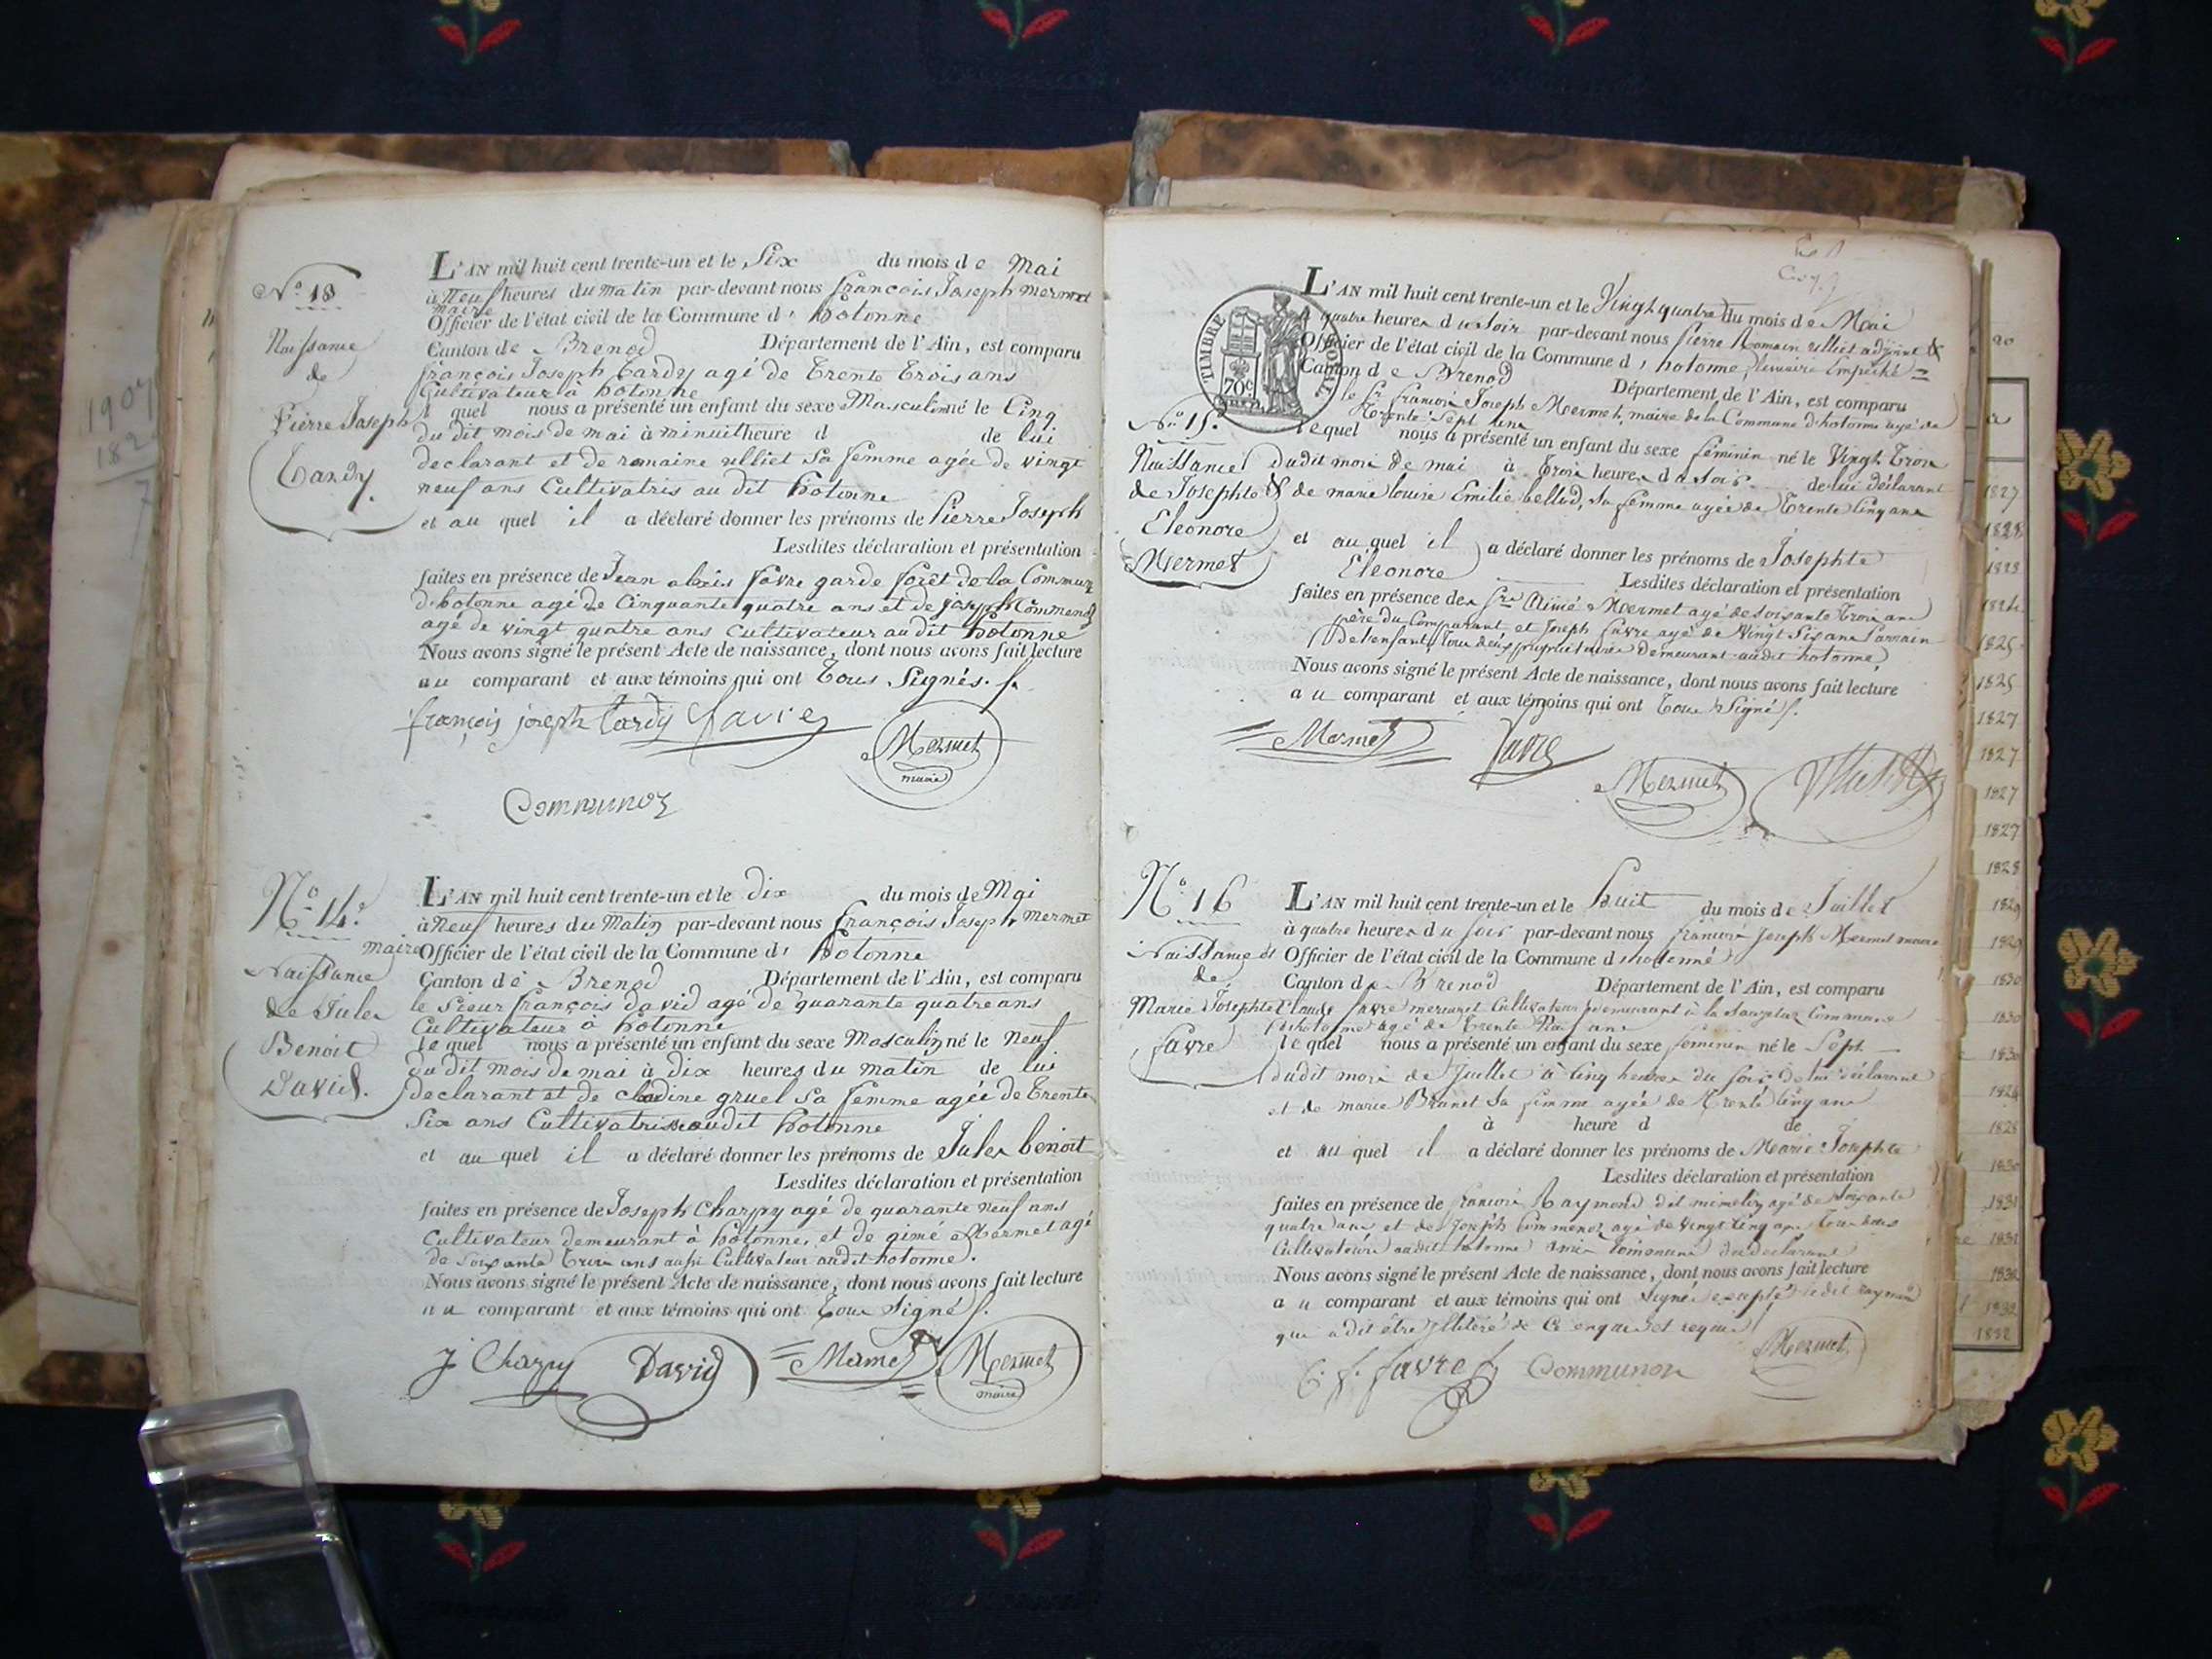 1907
182
7
N.º 13
Naissance
de
Pierre Joseph
Tardy.
L'AN mil huit cent trente-un et le Six du mois de Mai
à Neuf heures du matin par-devant nous françois Joseph mermet
maire
Officier de l'état civil de la Commune d' hotonne
Canton de Brenod Département de l'Ain, est comparu
françois Joseph tardy agé de trente trois ans
Cultivateur à hotonne
l quel nous a présenté un enfant du sexe Masculin né le Cinq
du dit mois de mai à minuit heure d de lui
declarant et de romaine ulliet sa femme agée de vingt
neuf ans Cultivatris au dit hotonne
et au quel il a déclaré donner les prénoms de Pierre Joseph
Lesdites déclaration et présentation
faites en présence de Jean alexis favre garde forêt de la Commune
d'hotonne agé de Cinquante quatre ans et de joseph Commenoz
agé de vingt quatre ans cultivateur au dit hotonne
Nous avons signé le présent Acte de naissance, dont nous avons fait lecture
au comparant et aux témoins qui ont tous signés.
françois joseph tardy favre
Mermet
maire
Communoz
N.º 14.
Naissance
de Jules
Benoit
David.
L'AN mil huit cent trente-un et le dix du mois de Mai
à Neuf heures du Matin par-devant nous françois Joseph mermet
maire Officier de l'état civil de la Commune d' hotonne
Canton de Brenod Département de l'Ain, est comparu
le Sieur françois david agé de quarante quatre ans
Cultivateur à hotonne
le quel nous a présenté un enfant du sexe Masculin né le Neuf
du dit mois de mai à dix heures du matin de lui
declarant et de clodine gruel sa femme agée de trente
Six ans Cultivatrise audit hotonne
et au quel il a déclaré donner les prénoms de Jules benoit
Lesdites déclaration et présentation
faites en présence de Joseph Charpy agé de quarante neuf ans
Cultivateur demeurant à hotonne, et de aimé Mermet agé
de soixante trois ans aussi Cultivateur audit hotonne.
Nous avons signé le présent Acte de naissance, dont nous avons fait lecture
au comparant et aux témoins qui ont tous signé
J Charpy David Mermet Mermet
maire
TIMBRE ROYAL
70c
N.º 15.
Naissance
de Josephte
Eleonore
Mermet
L'AN mil huit cent trente-un et le Vingt quatre du mois de Mai
à quatre heures du soir par-devant nous Pierre Romain ulliet adjoint
Officier de l'état civil de la Commune d' hotonne, le maire empeché
Canton de Brenod Département de l'Ain, est comparu
le Sr françois Joseph Mermet, maire de la Commune d'hotonne agé de
trente Sept ans
lequel nous a présenté un enfant du sexe féminin né le Vingt trois
dudit mois de mai à trois heures du soir de lui déclarant
& de marie louise Emilie bellod, sa femme agée de trente Cinq ans
et au quel il a déclaré donner les prénoms de Josephte
Eléonore
Lesdites déclaration et présentation
faites en présence des Srs Aimé Mermet agé de soixante trois ans
père du Comparant et Joseph favre agé de Vingt Six ans Parrain
de l'enfant, tous deux propriétaires demeurant audit hotonne,
Nous avons signé le présent Acte de naissance, dont nous avons fait lecture
au comparant et aux témoins qui ont tous signé
Mermet favre
Mermet
N.º 16
Naissance
de
Marie Josephte
favre
L'AN mil huit cent trente-un et le huit du mois de Juillet
à quatre heures du soir par-devant nous françois Joseph Mermet maire
Officier de l'état civil de la Commune d' hotonne
Canton de Brenod Département de l'Ain, est comparu
Claude favre Cultivateur demeurant à la Commune
d'hotonne agé de trente ans
lequel nous a présenté un enfant du sexe féminin né le Sept
dudit mois de Juillet à Cinq heures du soir de lui déclarant
et de marie Brunet sa femme agée de trente Cinq ans
à heure d de
et au quel il a déclaré donner les prénoms de Marie Josephte
Lesdites déclaration et présentation
faites en présence de françois Raymond dit agé de soixante
quatre ans et de Joseph Commenoz agé de vingt Cinq ans tous deux
Cultivateurs audit hotonne du déclarant
Nous avons signé le présent Acte de naissance, dont nous avons fait lecture
au comparant et aux témoins qui ont signé excepté ledit Raymond
qui a dit être illitéré de Ce enquis et requis
C. f. favre Communoz Mermet
1827
1828
1827
1827
1827
1827
1828
1829
1829
1830
1830
1830
1830
1831
1831
1832
1832
1832